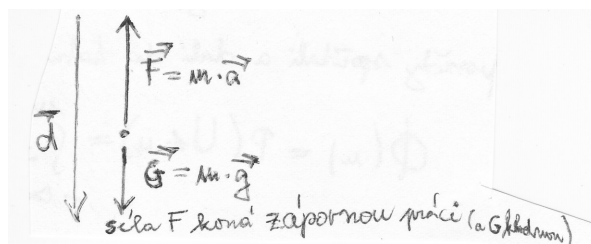 F = m·a
d
G = m·g
síla F koná zápornou práci (a G kladnou)